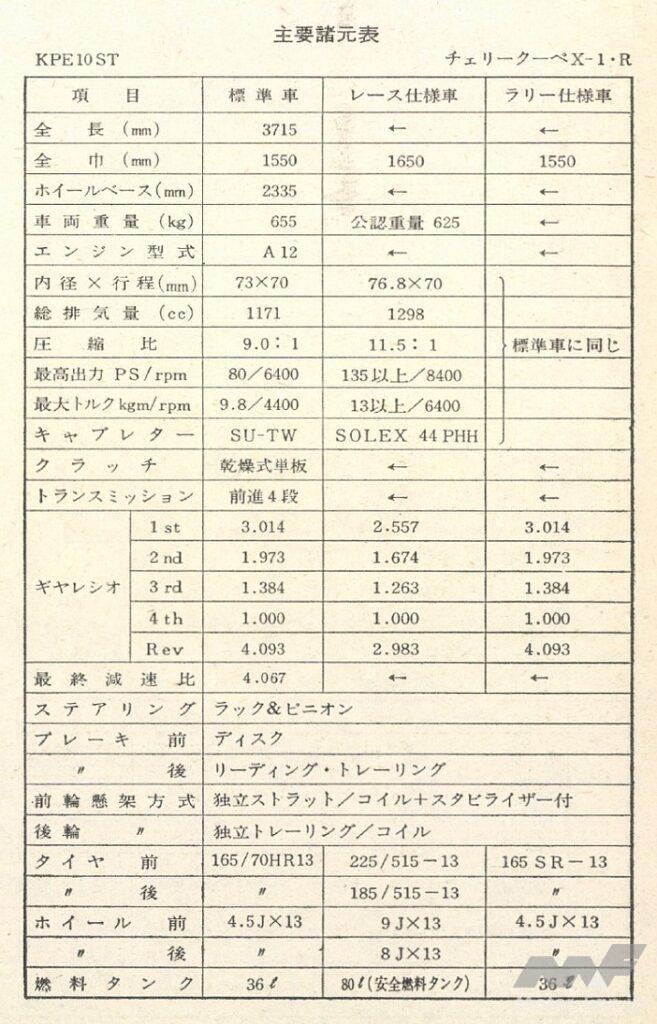 主要諸元表
KPE10ST チェリークーペX-1・R
項目 標準車 レース仕様車 ラリー仕様車
全長(mm) 3715 ← ←
全巾(mm) 1550 1650 1550
ホイールベース(mm) 2335 ← ←
車両重量(kg) 655 公認重量 625 ←
エンジン型式 A12 ← ←
内径×行程(mm) 73×70 76.8×70
総排気量(cc) 1171 1298
圧縮比 9.0:1 11.5:1 標準車に同じ
最高出力 PS/rpm 80/6400 135以上/8400
最大トルクkgm/rpm 9.8/4400 13以上/6400
キャブレター SU-TW SOLEX 44PHH
クラッチ 乾燥式単板 ← ←
トランスミッション 前進4段 ← ←
ギヤレシオ 1st 3.014 2.557 3.014
2nd 1.973 1.674 1.973
3rd 1.384 1.263 1.384
4th 1.000 1.000 1.000
Rev 4.093 2.983 4.093
最終減速比 4.067 ← ←
ステアリング ラック&ピニオン
ブレーキ 前 ディスク
〃 後 リーディング・トレーリング
前輪懸架方式 独立ストラット/コイル+スタビライザー付
後輪 〃 独立トレーリング/コイル
タイヤ 前 165/70HR13 225/515-13 165SR-13
〃 後 〃 185/515-13 〃
ホイール 前 4.5J×13 9J×13 4.5J×13
〃 後 〃 8J×13 〃
燃料タンク 36ℓ 80ℓ(安全燃料タンク) 36ℓ